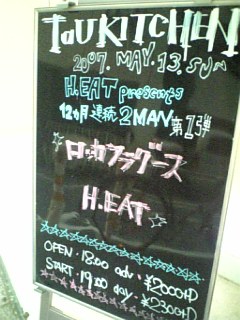 TaU KITCHEN
2007. MAY. 13. SUN
H.EAT presents
12ヵ月連続2MAN第1弾
ロッカフラグース
H.EAT
OPEN・18:00 adv・¥2000+D
START・19:00 day・¥2300+D